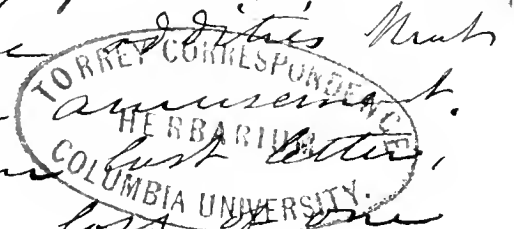 oddities
TORREY CORRESPONDENCE
amusement.
HERBARIUM
last letter,
COLUMBIA UNIVERSITY.
lost of one